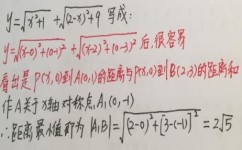 y=√(x²+1) +√((2-x)²+9) 写成:
y=√((x-0)²+(0-1)²) +√((x-2)²+(0-3)²) 后,很容易
看出是P(x,0)到A(0,1)的距离与P(x,0)到B(2,3)的距离和
作A关于x轴对称点,A₁(0,-1)
∴距离最小值即为|A₁B|=√((2-0)²+[3-(-1)]²)=2√5